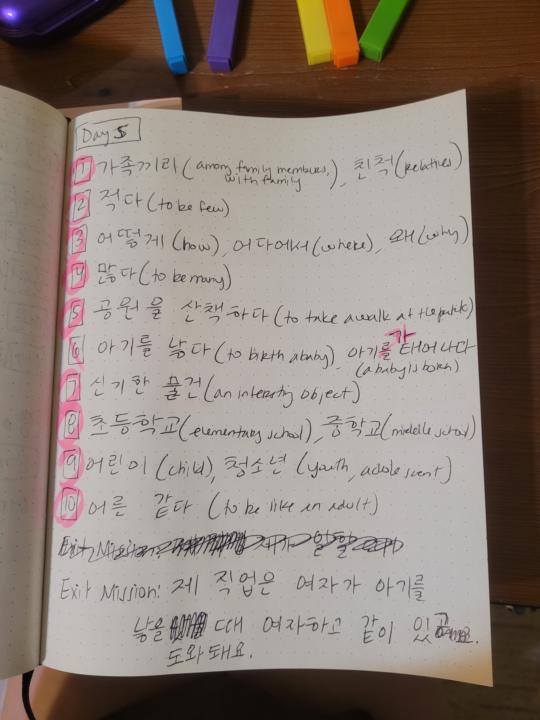 Day 5
1 가족끼리 (among family members, with family), 친척 (relatives)
2 적다 (to be few)
3 어떻게 (how), 어디에서 (where), 왜 (why)
4 많다 (to be many)
5 공원을 산책하다 (to take a walk at the park)
6 아기를 낳다 (to birth a baby), 아기를 가 태어나다 (a baby is born)
7 신기한 물건 (an interesting object)
8 초등학교 (elementary school), 중학교 (middle school)
9 어린이 (child), 청소년 (youth, adolescent)
10 어른 같다 (to be like an adult)
Exit Mission: 제 직업은 여자가 아기를
낳을 때 여자하고 같이 있
도와줘요.